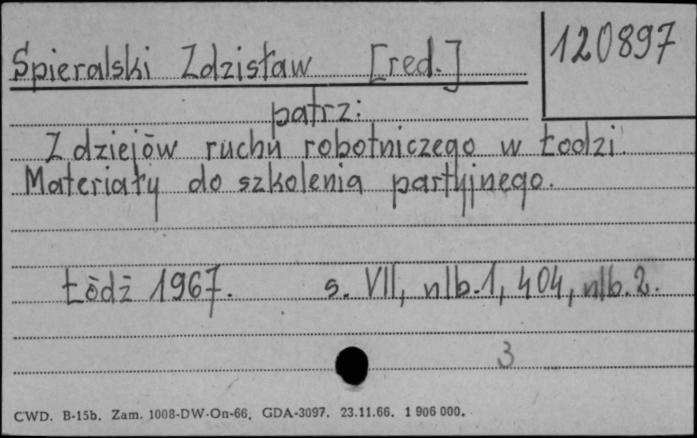 Spieralski Zdzisław [red.] 120897
patrz:
Z dziejów ruchu robotniczego w Łodzi.
Materiały do szkolenia partyjnego.
Łódź 1967. s. VII, nlb. 1, 404, nlb. 2.
3
CWD. B-15b. Zam. 1008-DW-On-66. GDA-3097. 23.11.66. 1 906 000.